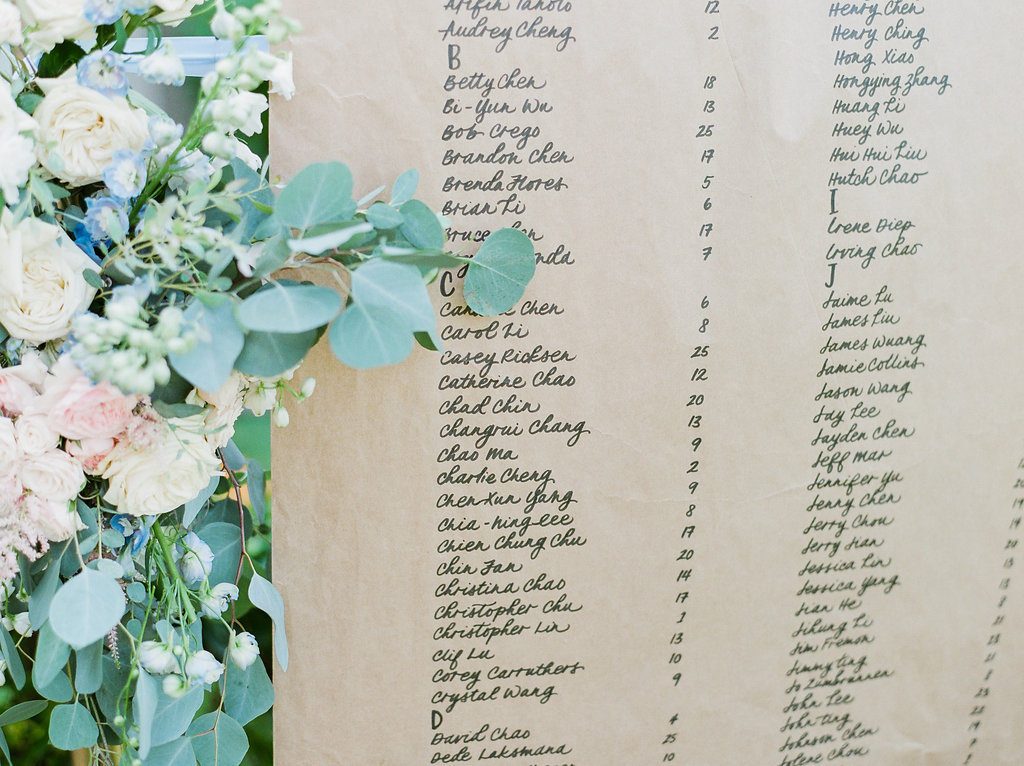 Arifin Tanoto 12
Audrey Cheng 2
B
Betty Chen 18
Bi-Yun Wu 13
Bob Crego 25
Brandon Chen 17
Brenda Flores 5
Brian Li 6
Bruce 17
7
C
Chen 6
Carol Li 8
Casey Ricksen 25
Catherine Chao 12
Chad Chin 20
Changrui Chang 13
Chao Ma 9
Charlie Cheng 2
Chen-Xun Yang 9
Chia-ning Lee 8
Chien Chung Chu 17
Chin Fan 20
Christina Chao 14
Christopher Chu 17
Christopher Lin 1
Clif Lu 13
Corey Carruthers 10
Crystal Wang 9
D
David Chao 4
Dede Laksmana 25
10
Henry Chen
Henry Ching
Hong Xiao
Hongying Zhang
Huang Li
Huey Wu
Hui Hui Liu
Hutch Chao
I
Irene Diep
Irving Chao
J
Jaime Lu
James Liu
James Wuang
Jamie Collins
Jason Wang
Jay Lee
Jayden Chen
Jeff Mar
Jennifer Yu
Jenny Chen
Jerry Chou
Jerry Jian
Jessica Lin
Jessica Yang
Jian He
Jihung Li
Jim Fremon
Jimmy Ting
Jo Zumbrunnen
John Lee
John Ting
Johnson Chen
Jolene Chou